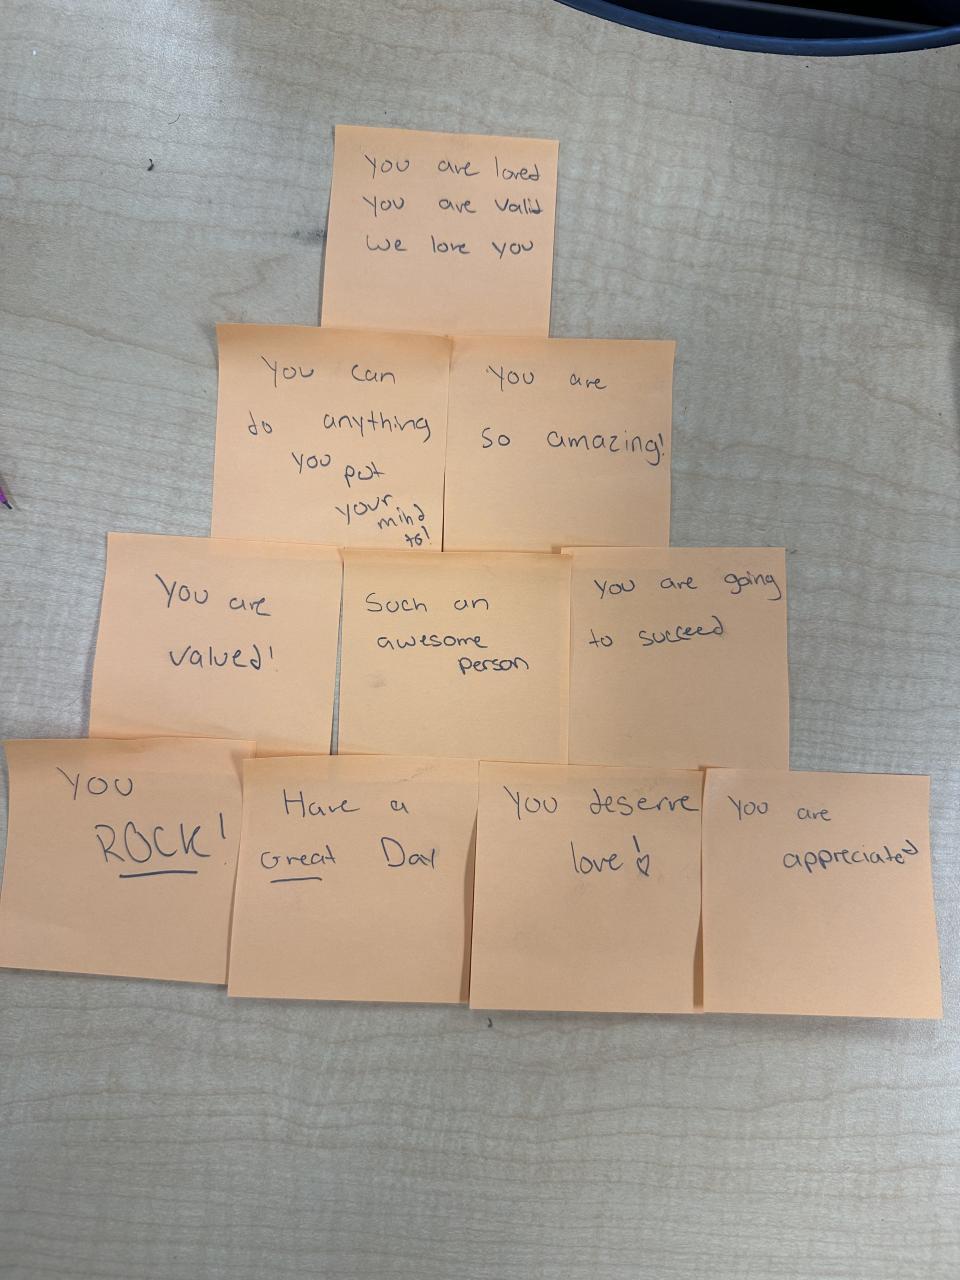 You are loved
You are valid
We love you
You can
do anything
you put
your
mind
to!
You are
so amazing!
You are
valued!
Such an
awesome
person
You are going
to succeed
You
ROCK!
Have a
Great Day
You deserve
love!
You are
appreciated